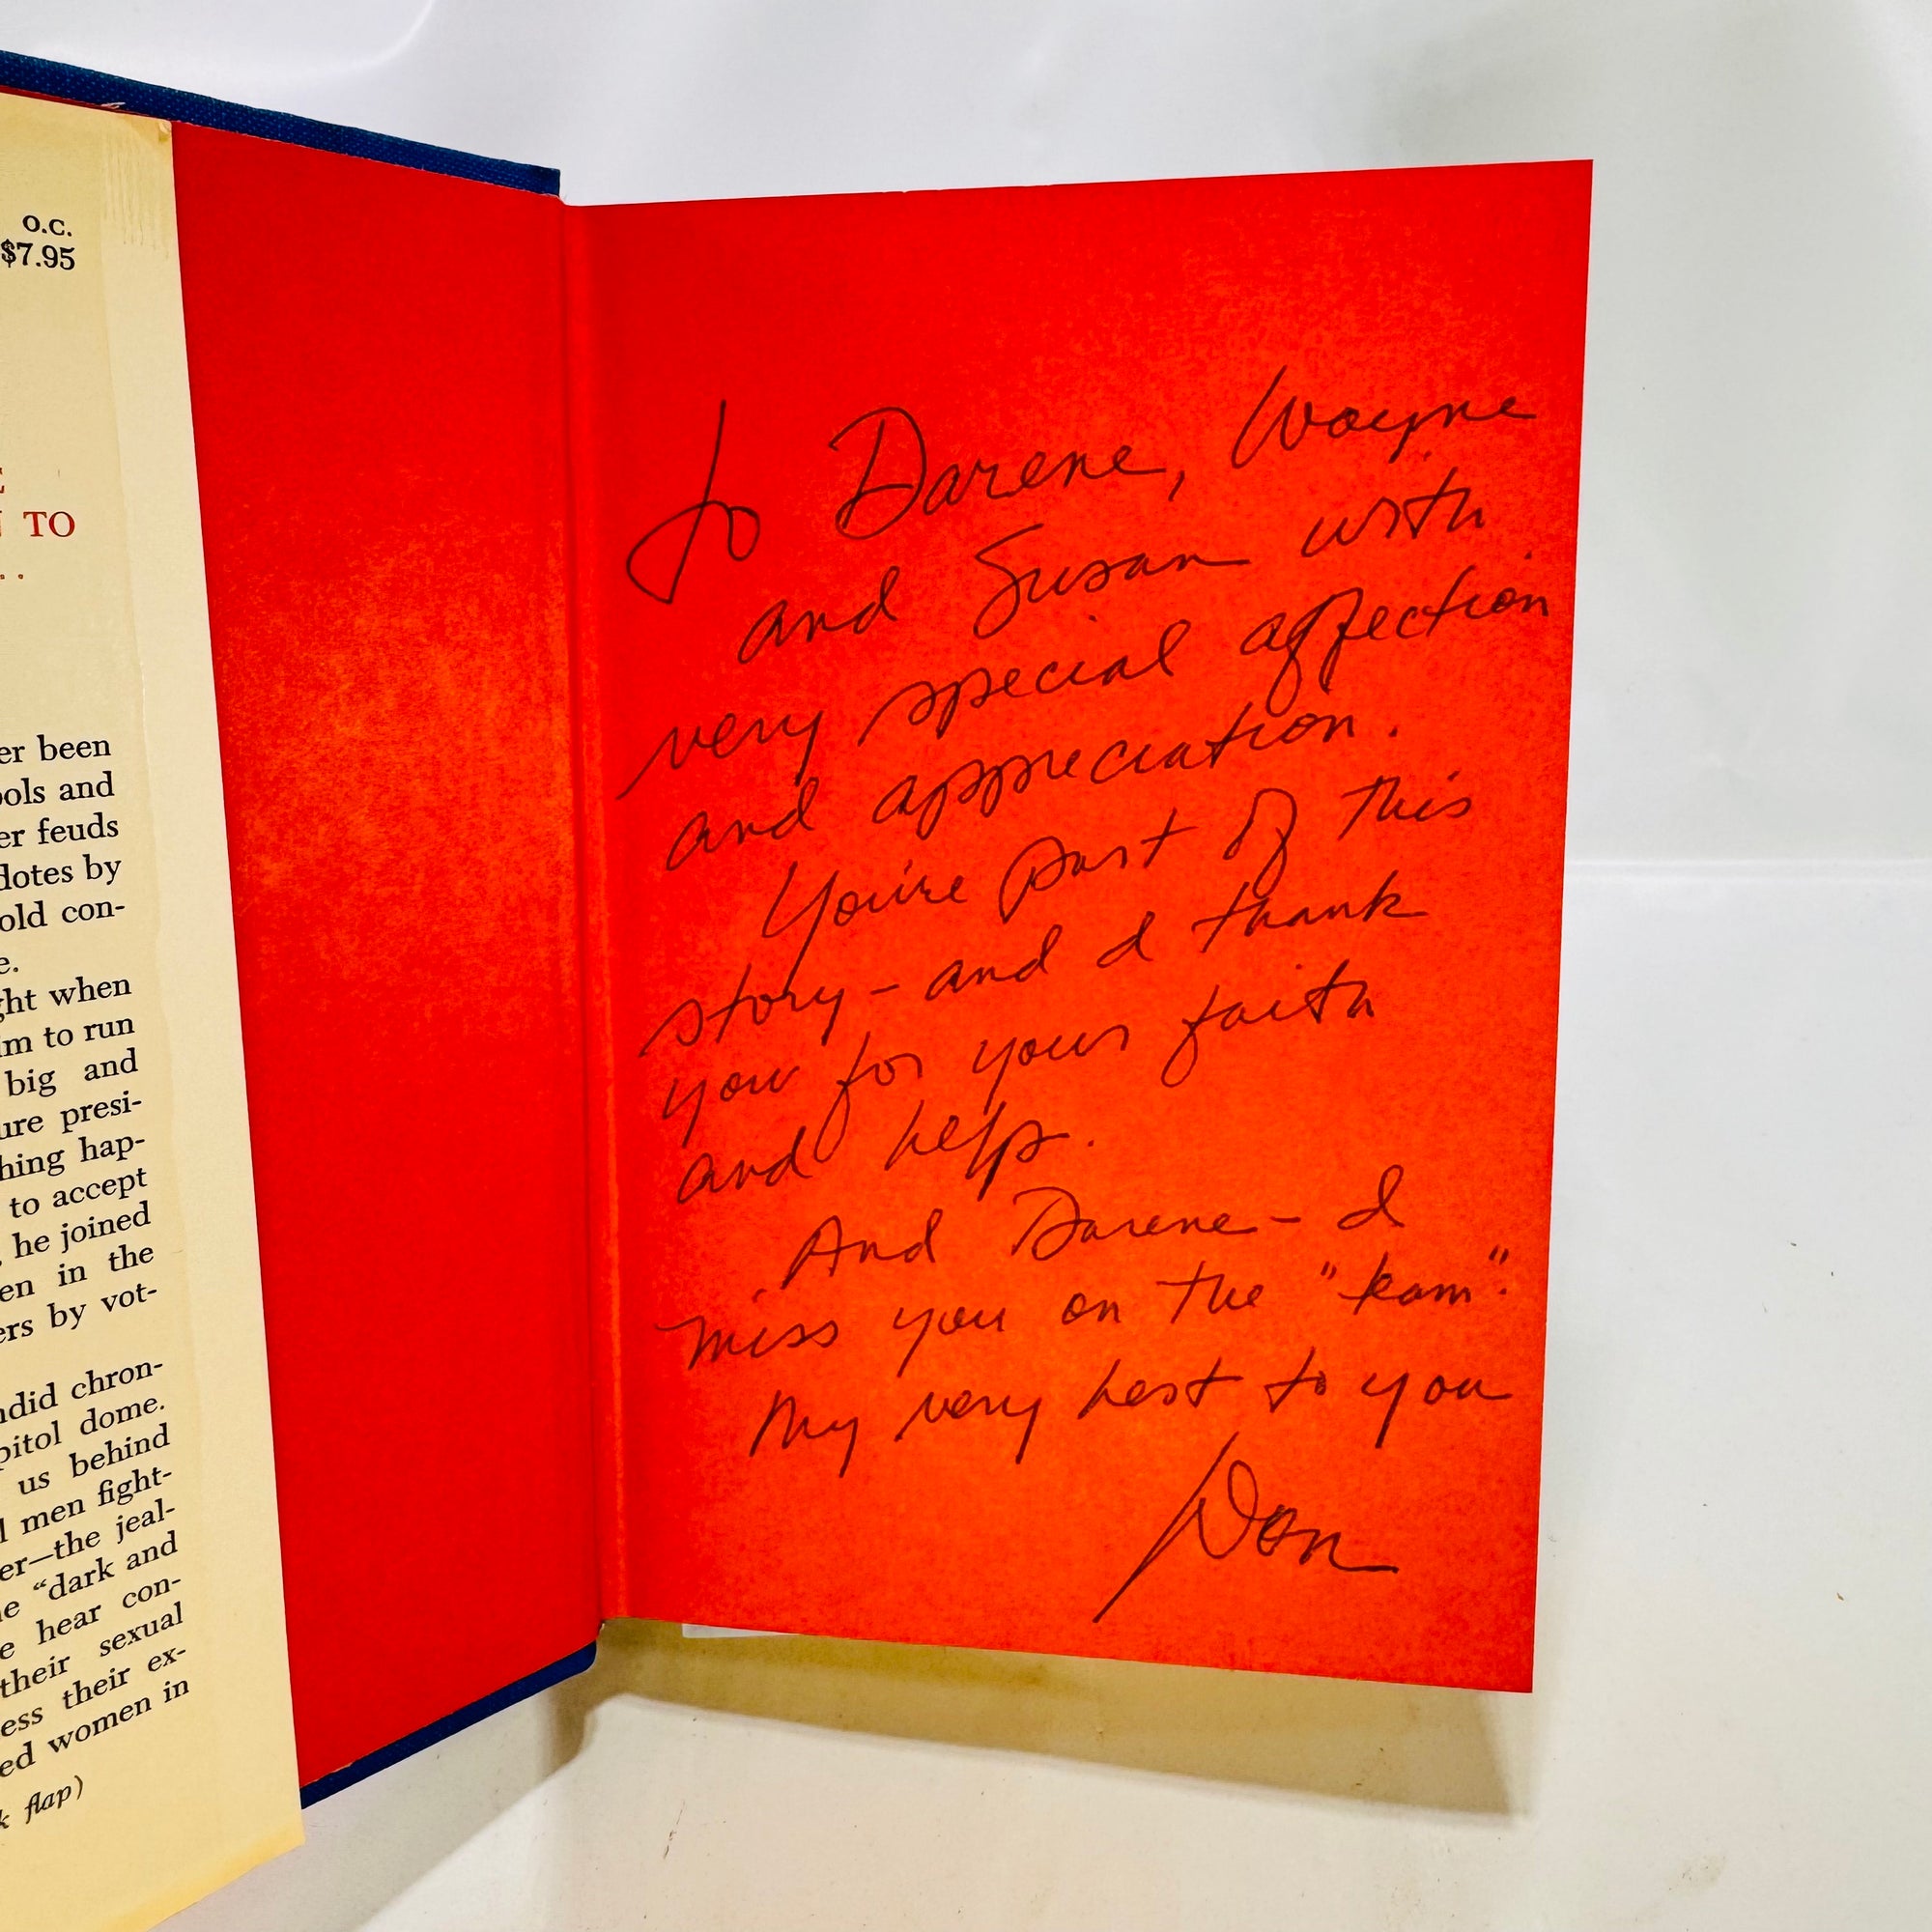 O.C.
$7.95
TO
. .
er been
ools and
er feuds
dotes by
old con-
e.
ght when
im to run
big and
ure presi-
hing hap-
to accept
, he joined
en in the
ers by vot-
ndid chron-
pitol dome.
us behind
l men fight-
er—the jeal-
e “dark and
e hear con-
their sexual
ess their ex-
ed women in
k flap)
To Darene, Wayne
and Susan with
very special affection
and appreciation.
You're part of this
story - and I thank
you for your faith
and help.
And Darene - I
miss you on the "kam".
My very best to you
Don